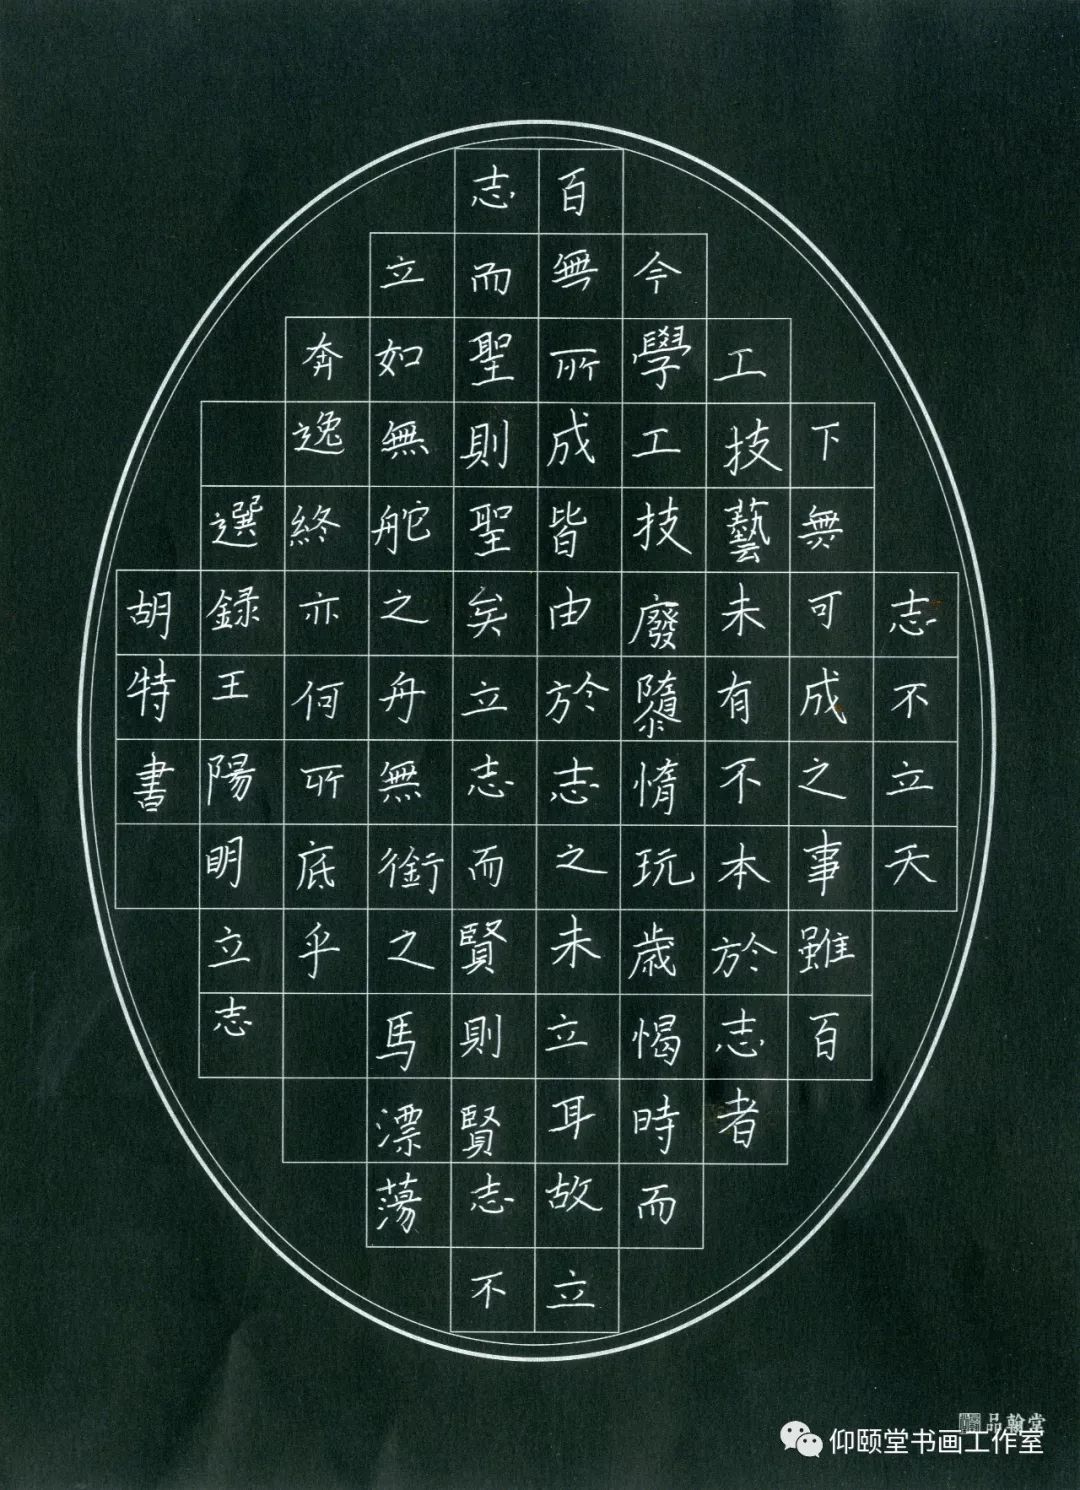 志不立天
下無可成之事雖百
工技藝未有不本於志者
今學工技廢隳惰玩歲愒時而
百無所成皆由於志之未立耳故立
志而聖則聖矣立志而賢則賢志不
立如無舵之舟無銜之馬漂蕩
奔逸終亦何所底乎
選録王陽明立志
胡特書
品翰堂
仰颐堂书画工作室